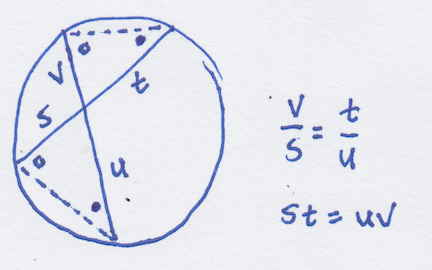 V
t
S
u
v/s = t/u
st = uv